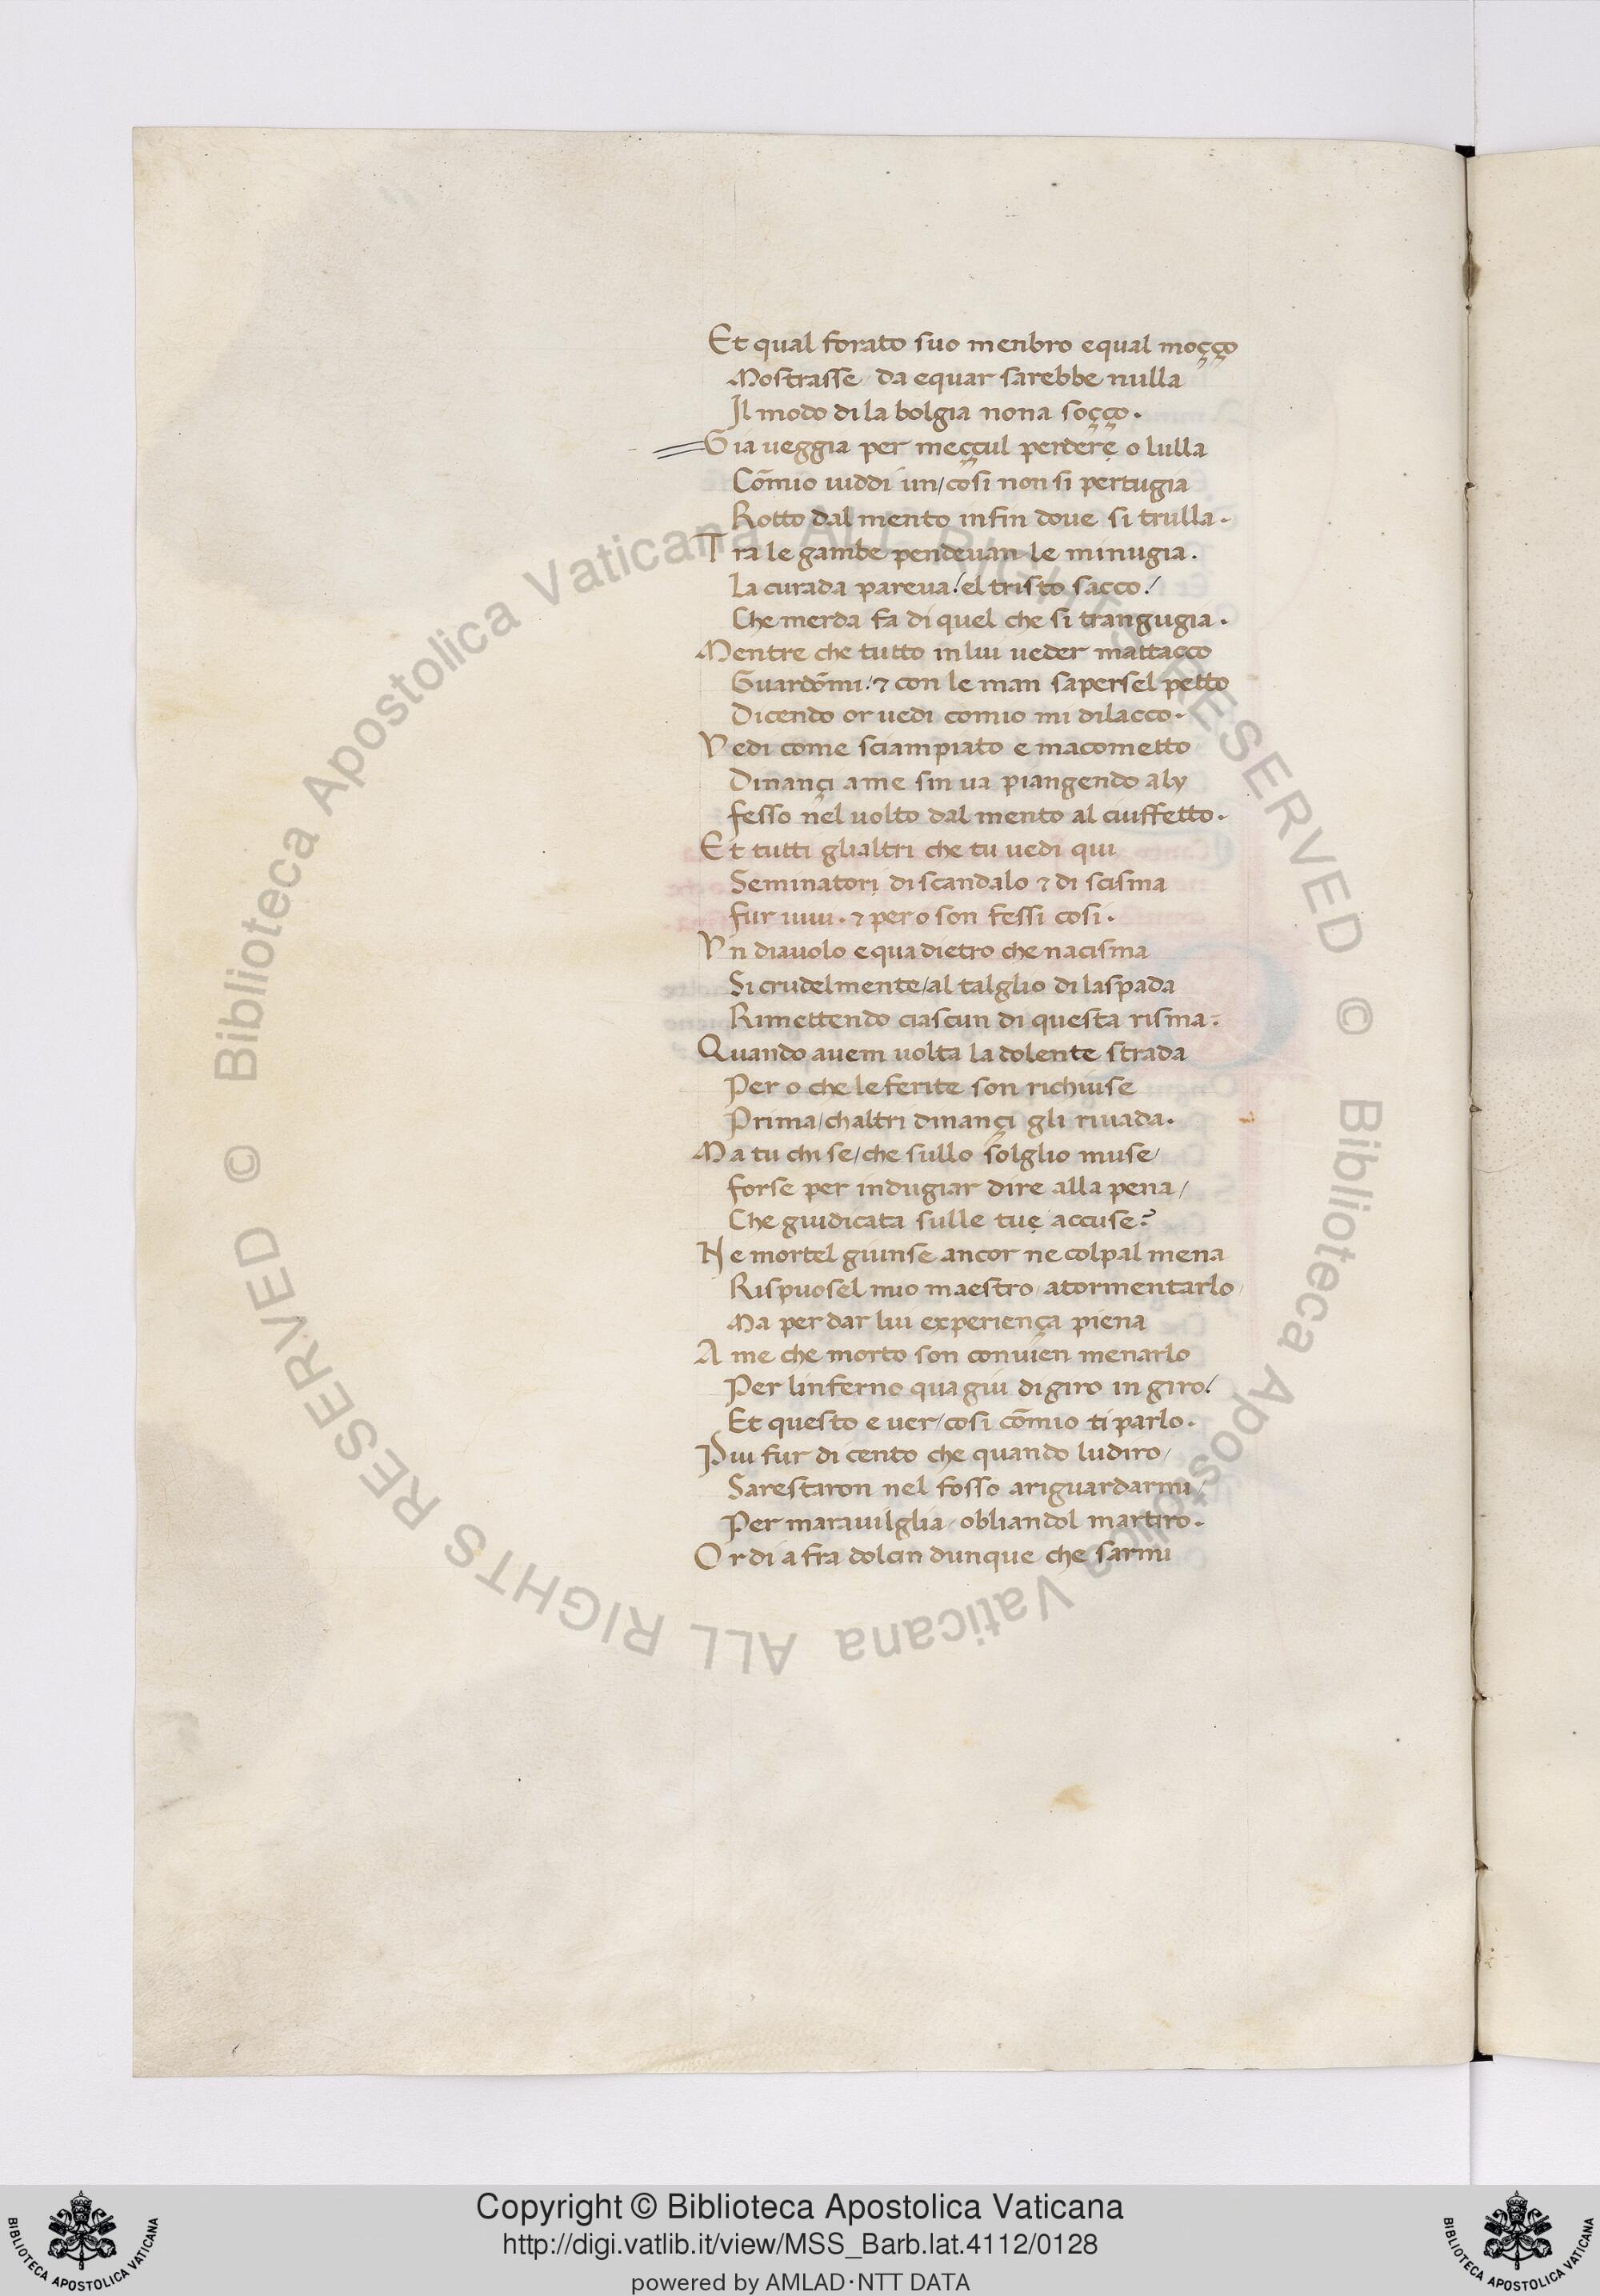 Et qual forato suo menbro equal moçço
Mostrasse/ da equar sarebbe nulla
Il modo di la bolgia nona soçço.
Gia veggia per meççul perdere o lulla
Cōmio uiddi un/cosi non si pertugia
Rotto dal mento infin doue si trulla.
Tra le gambe pendevan le minugia.
La curada pareva/el tristo sacco/
Che merda fa di quel che si trangugia.
Mentre che tutto in lui ueder mattacco
Guardōmi/⁊ con le man sapersel petto
Dicendo or uedi comio mi dilacco.
Vedi come sciampiato e macometto
Dinançi a me sin ua piangendo aly
fesso nel uolto dal mento al ciuffetto.
Et tutti glialtri che tu uedi qui
Seminatori di scandalo ⁊ di scisma
fur uiui. ⁊ pero son fessi cosi.
Vn diauolo e qua dietro che nacisma
Si crudelmente/al talglio di laspada
Rimettendo ciascun di questa risma.
Quando auem uolta la dolente strada
Per o che le ferite son richiuse
Prima/chaltri dinançi gli riuada.
Ma tu chi se/che sullo solglio muse/
forse per indugiar dire alla pena/
Che giudicata sulle tue accuse?
Ne mortel giunse ancor ne colpal mena
Rispuosel mio maestro/atormentarlo/
Ma per dar lui experiença piena
A me che morto son convien menarlo
Per linferno qua giu di giro in giro/
Et questo e uer/cosi cōmio ti parlo.
Piu fur di cento che quando ludiro/
Sarestaron nel fosso ariguardarmi/
Per marauilglia/obliandol martiro.
Or di a fra dolcin dunque che sarmi
© Biblioteca Apostolica Vaticana ALL RIGHTS RESERVED © Biblioteca Apostolica Vaticana ALL RIGHTS RESERVED
BIBLIOTECA APOSTOLICA VATICANA
Copyright © Biblioteca Apostolica Vaticana
http://digi.vatlib.it/view/MSS_Barb.lat.4112/0128
powered by AMLAD·NTT DATA
BIBLIOTECA APOSTOLICA VATICANA